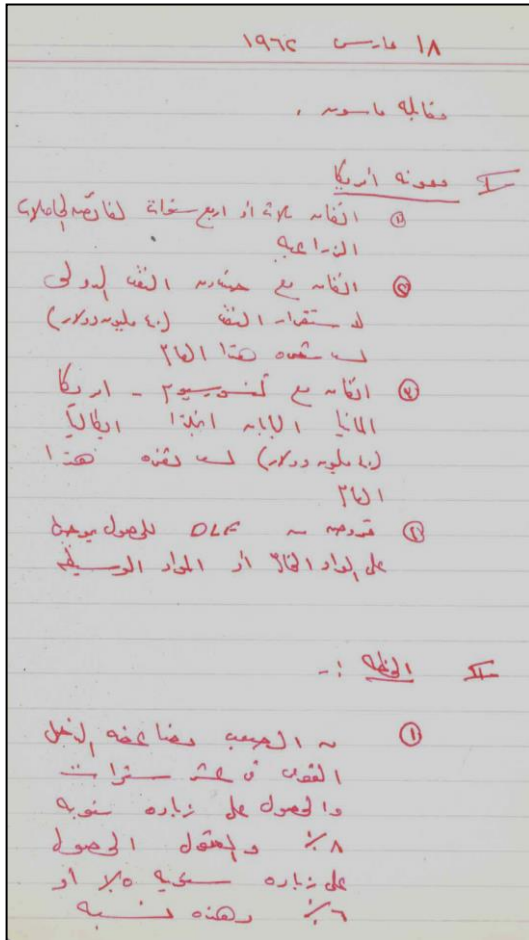 ١٨ مارس ١٩٦٢
مقابلة ماسون .
I معونه امريكا
(١) اتفاق ثلاث او اربع سنوات لفائض الحاصلات
الزراعيه
(٢) اتفاق مع صندوق النقد الدولى
لاستقرار النقد (٤٠ مليون دولار)
لسد نقص هذا العام
(٣) اتفاق مع كنسورسيوم - امريكا
المانيا اليابان انجلترا ايطاليا
(٤٠ مليون دولار) لسد نقص هذا
العام
(٤) قروض من DLF للحصول بموجبها
على المواد الخام او المواد الوسيطه
II الخطه :-
(١) من الصعب مضاعفه الدخل
القومى فى عشر سنوات
والحصول على زياده سنويه
٨٪ والمعقول الحصول
على زياده سنويه ٥٪ او
٦٪ وهذه نسبه